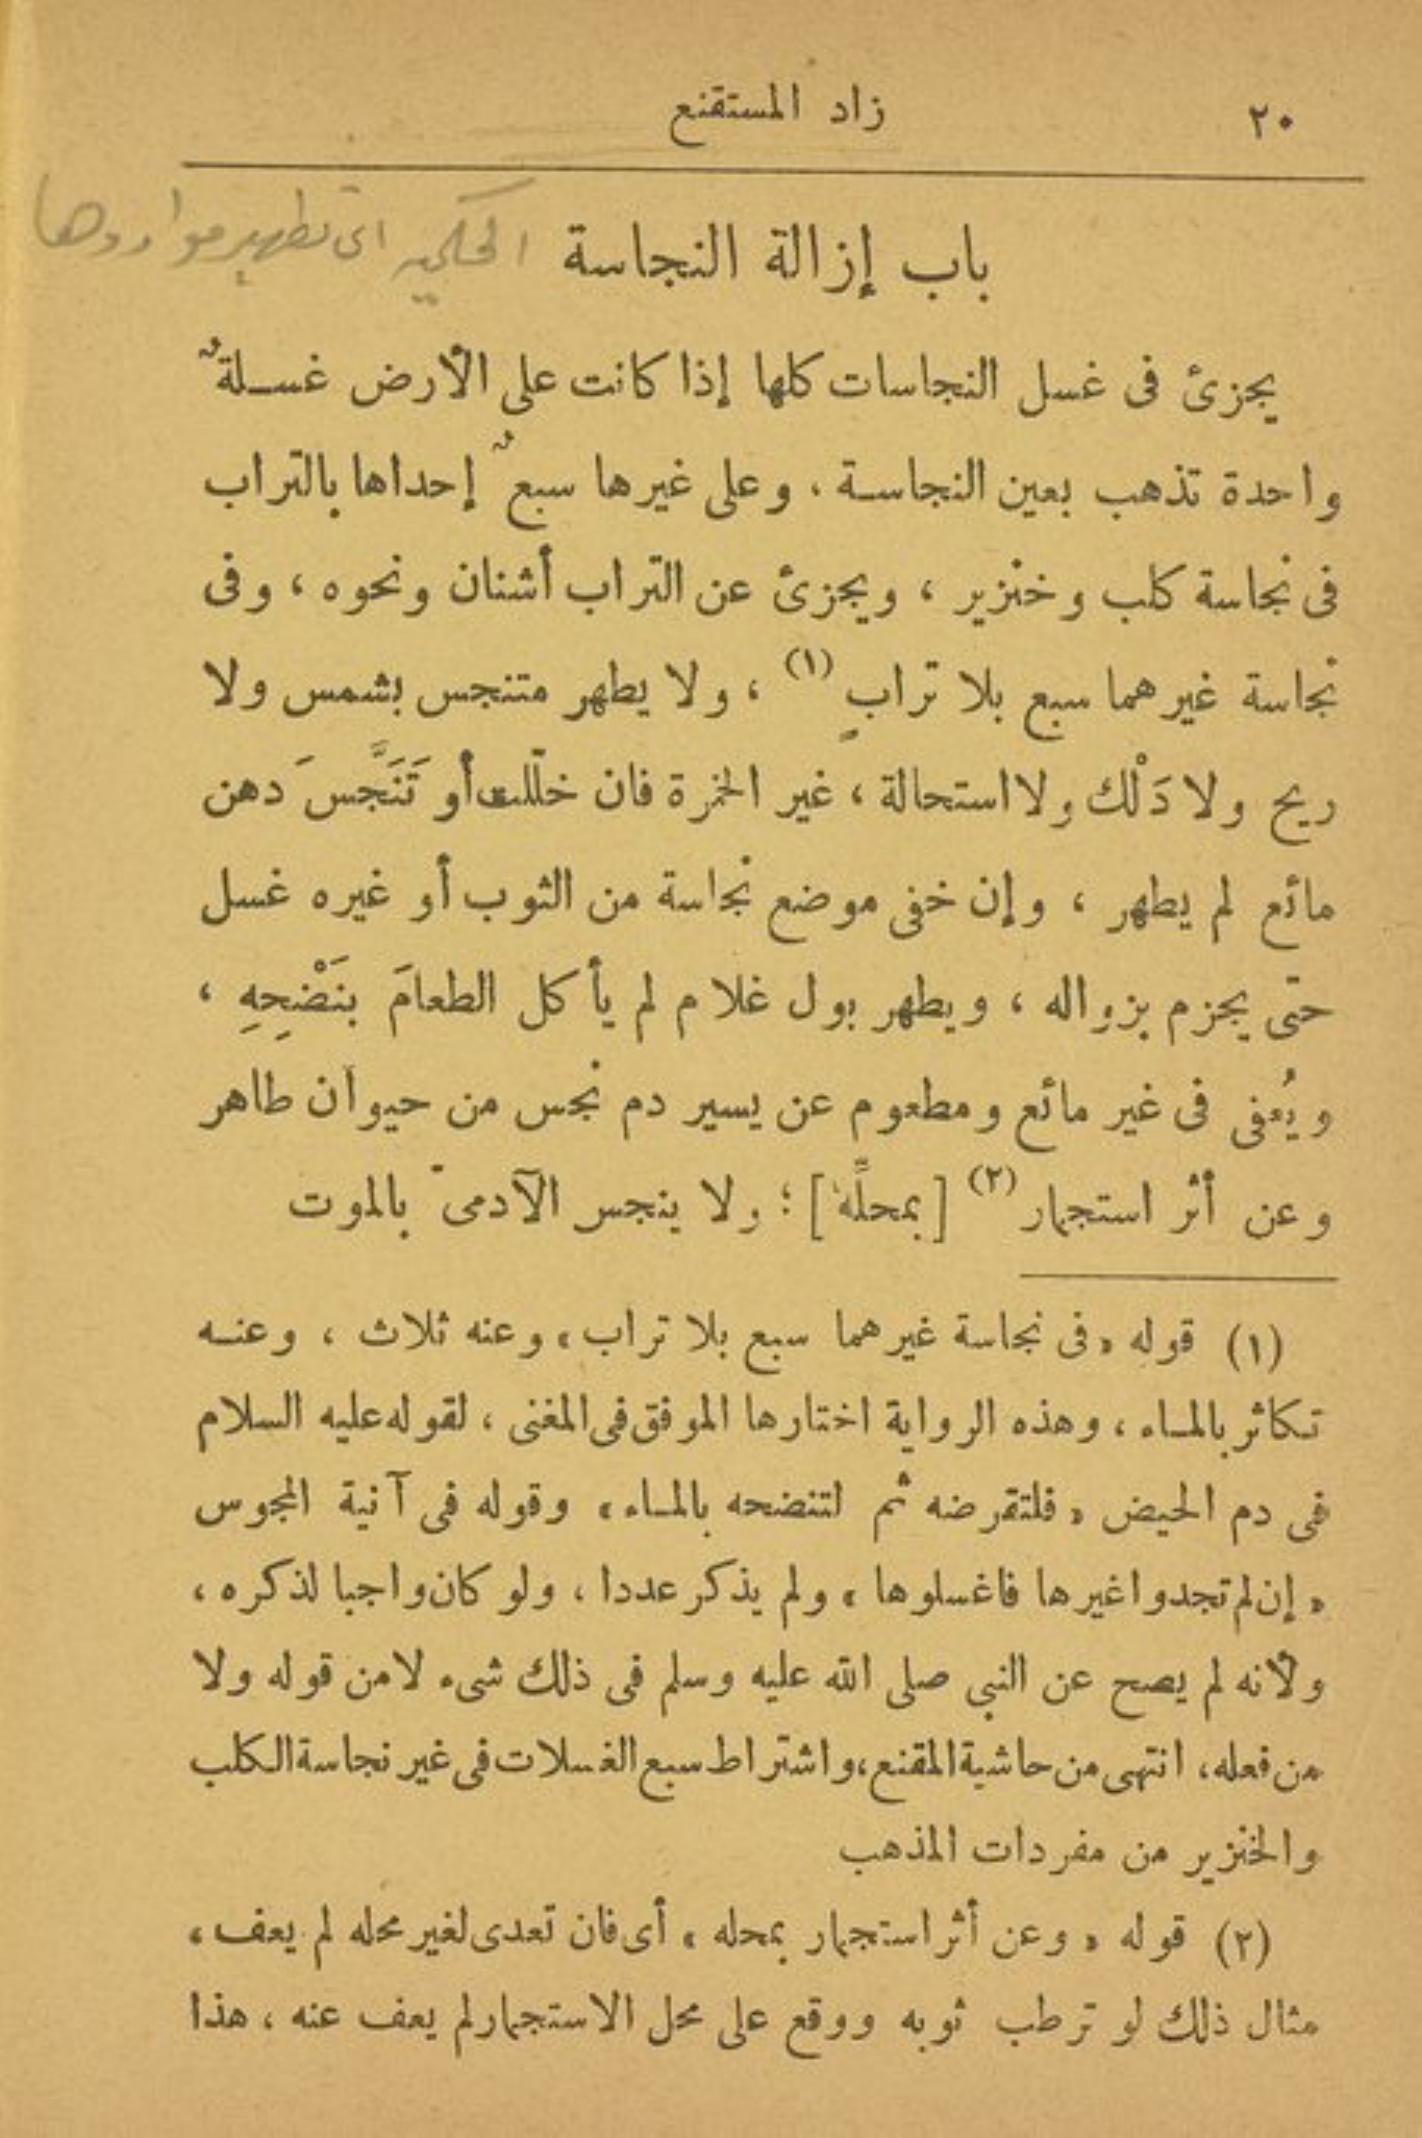 ٢٠
زاد المستقنع
باب إزالة النجاسة الحكمية اى تطهير مواردها
يجزئ فى غسل النجاسات كلها إذا كانت على الأرض غسلةٌ
واحدة تذهب بعين النجاسة ، وعلى غيرها سبعٌ إحداها بالتراب
فى نجاسة كلب وخنزير ، ويجزئ عن التراب أشنان ونحوه ، وفى
نجاسة غيرهما سبع بلا ترابٍ (١) ، ولا يطهر متنجس بشمس ولا
ريح ولا دَلْك ولا استحالة ، غير الخمرة فان خلّلت أو تَنَجَّسَ دهن
مائع لم يطهر ، وإن خفى موضع نجاسة من الثوب أو غيره غسل
حتى يجزم بزواله ، ويطهر بول غلام لم يأكل الطعامَ بنَضْحِهِ ،
ويُعفى فى غير مائع ومطعوم عن يسير دم نجس من حيوان طاهر
وعن أثر استجمار (٢) [ بمحلِّه ] ؛ ولا ينجس الآدمىّ بالموت
(١) قوله « فى نجاسة غيرهما سبع بلا تراب » وعنه ثلاث ، وعنه
تكاثر بالماء ، وهذه الرواية اختارها الموفق فى المغنى ، لقوله عليه السلام
فى دم الحيض « فلتقرضه ثم لتنضحه بالماء » وقوله فى آنية المجوس
« إن لم تجدوا غيرها فاغسلوها » ولم يذكر عددا ، ولو كان واجبا لذكره ،
ولأنه لم يصح عن النبي صلى الله عليه وسلم فى ذلك شىء لا من قوله ولا
من فعله ، انتهى من حاشية المقنع ، واشتراط سبع الغسلات فى غير نجاسة الكلب
والخنزير من مفردات المذهب
(٢) قوله « وعن أثر استجمار بمحله » أى فان تعدى لغير محله لم يعف ،
مثال ذلك لو ترطب ثوبه ووقع على محل الاستجمار لم يعف عنه ، هذا